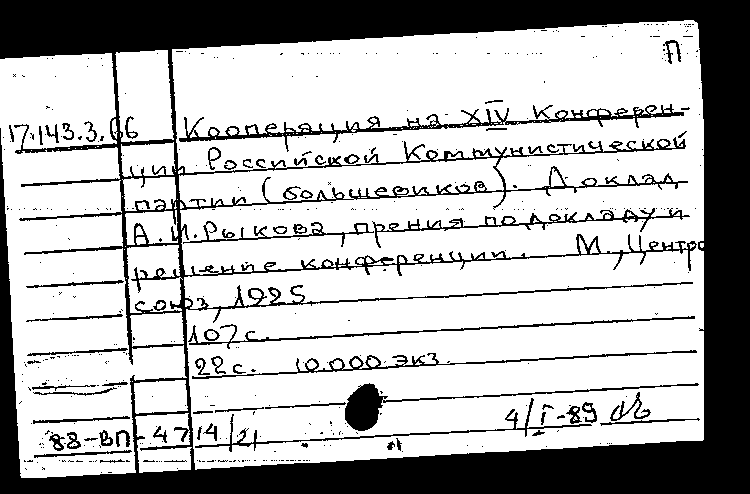 П
17.143.3.66 Кооперация на XIV Конферен-
ции Российской Коммунистической
партии (большевиков). Доклад
А.И.Рыкова, прения по докладу и
решение конференции. М., Центро
союз, 1925.
107 с.
22 с. 10.000 экз.
4/I-89
88-ВП-4714/21